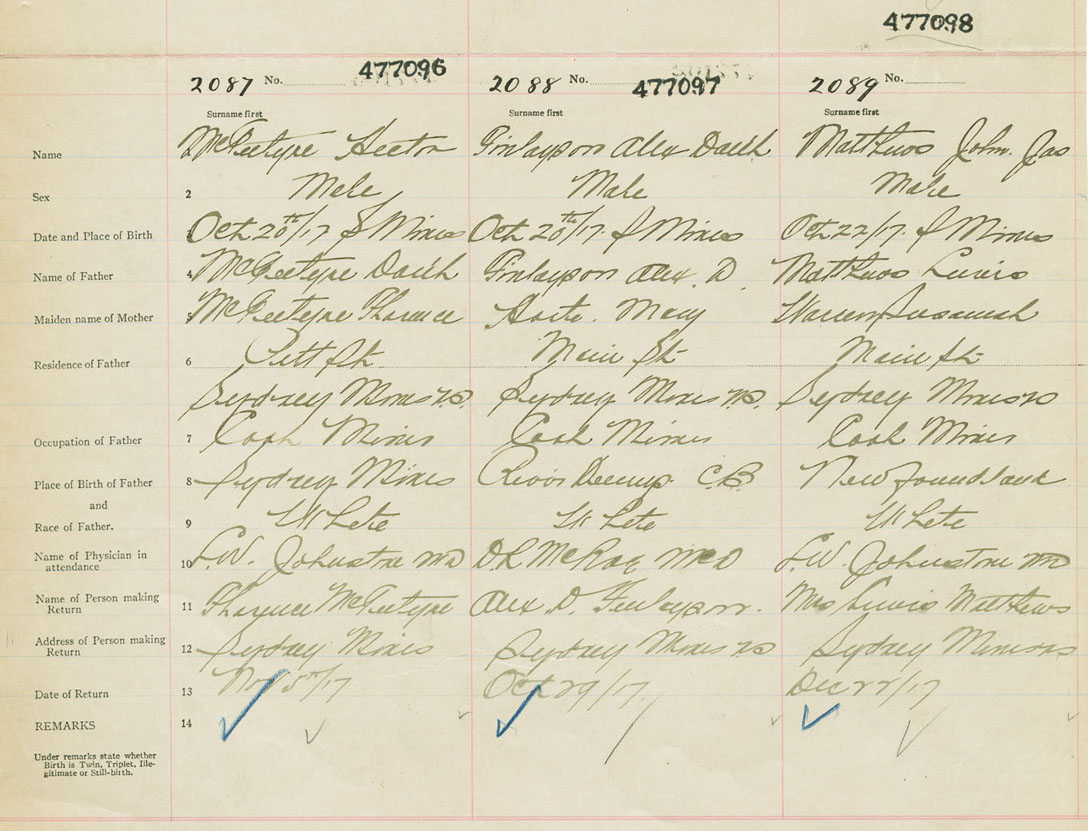 477098
2087 No. 477096
2088 No. 477097
2089 No.
Surname first Surname first Surname first
Name
Hector
Finlayson Alex
Matthews John. Jas
Sex 2 Male Male Male
Date and Place of Birth
Oct 20th/17 S Mines
Oct 20th/17. S Mines
Oct 22/17. S Mines
Name of Father 4
Finlayson Alex. D.
Matthews Lewis
Maiden name of Mother 5
Mary
Warren Susannah
Residence of Father 6 Pitt St. Main St. Main St.
Sydney Mines NS. Sydney Mines NS. Sydney Mines NS
Occupation of Father 7 Coal Miner Coal Miner Coal Miner
Place of Birth of Father 8 Sydney Mines
River Denny's C.B.
Newfoundland
and
Race of Father. 9 White White White
Name of Physician in
attendance 10 L.W. Johnstone MD
McRae MD
L.W. Johnstone MD
Name of Person making
Return 11
Alex D. Finlayson.
Mrs Lewis Matthews
Address of Person making
Return 12 Sydney Mines Sydney Mines NS Sydney Mines NS
Date of Return 13 Nov 5/17 Oct 29/17. Dec 27/17
REMARKS 14
Under remarks state whether
Birth is Twin, Triplet, Ille-
gitimate or Still-birth.